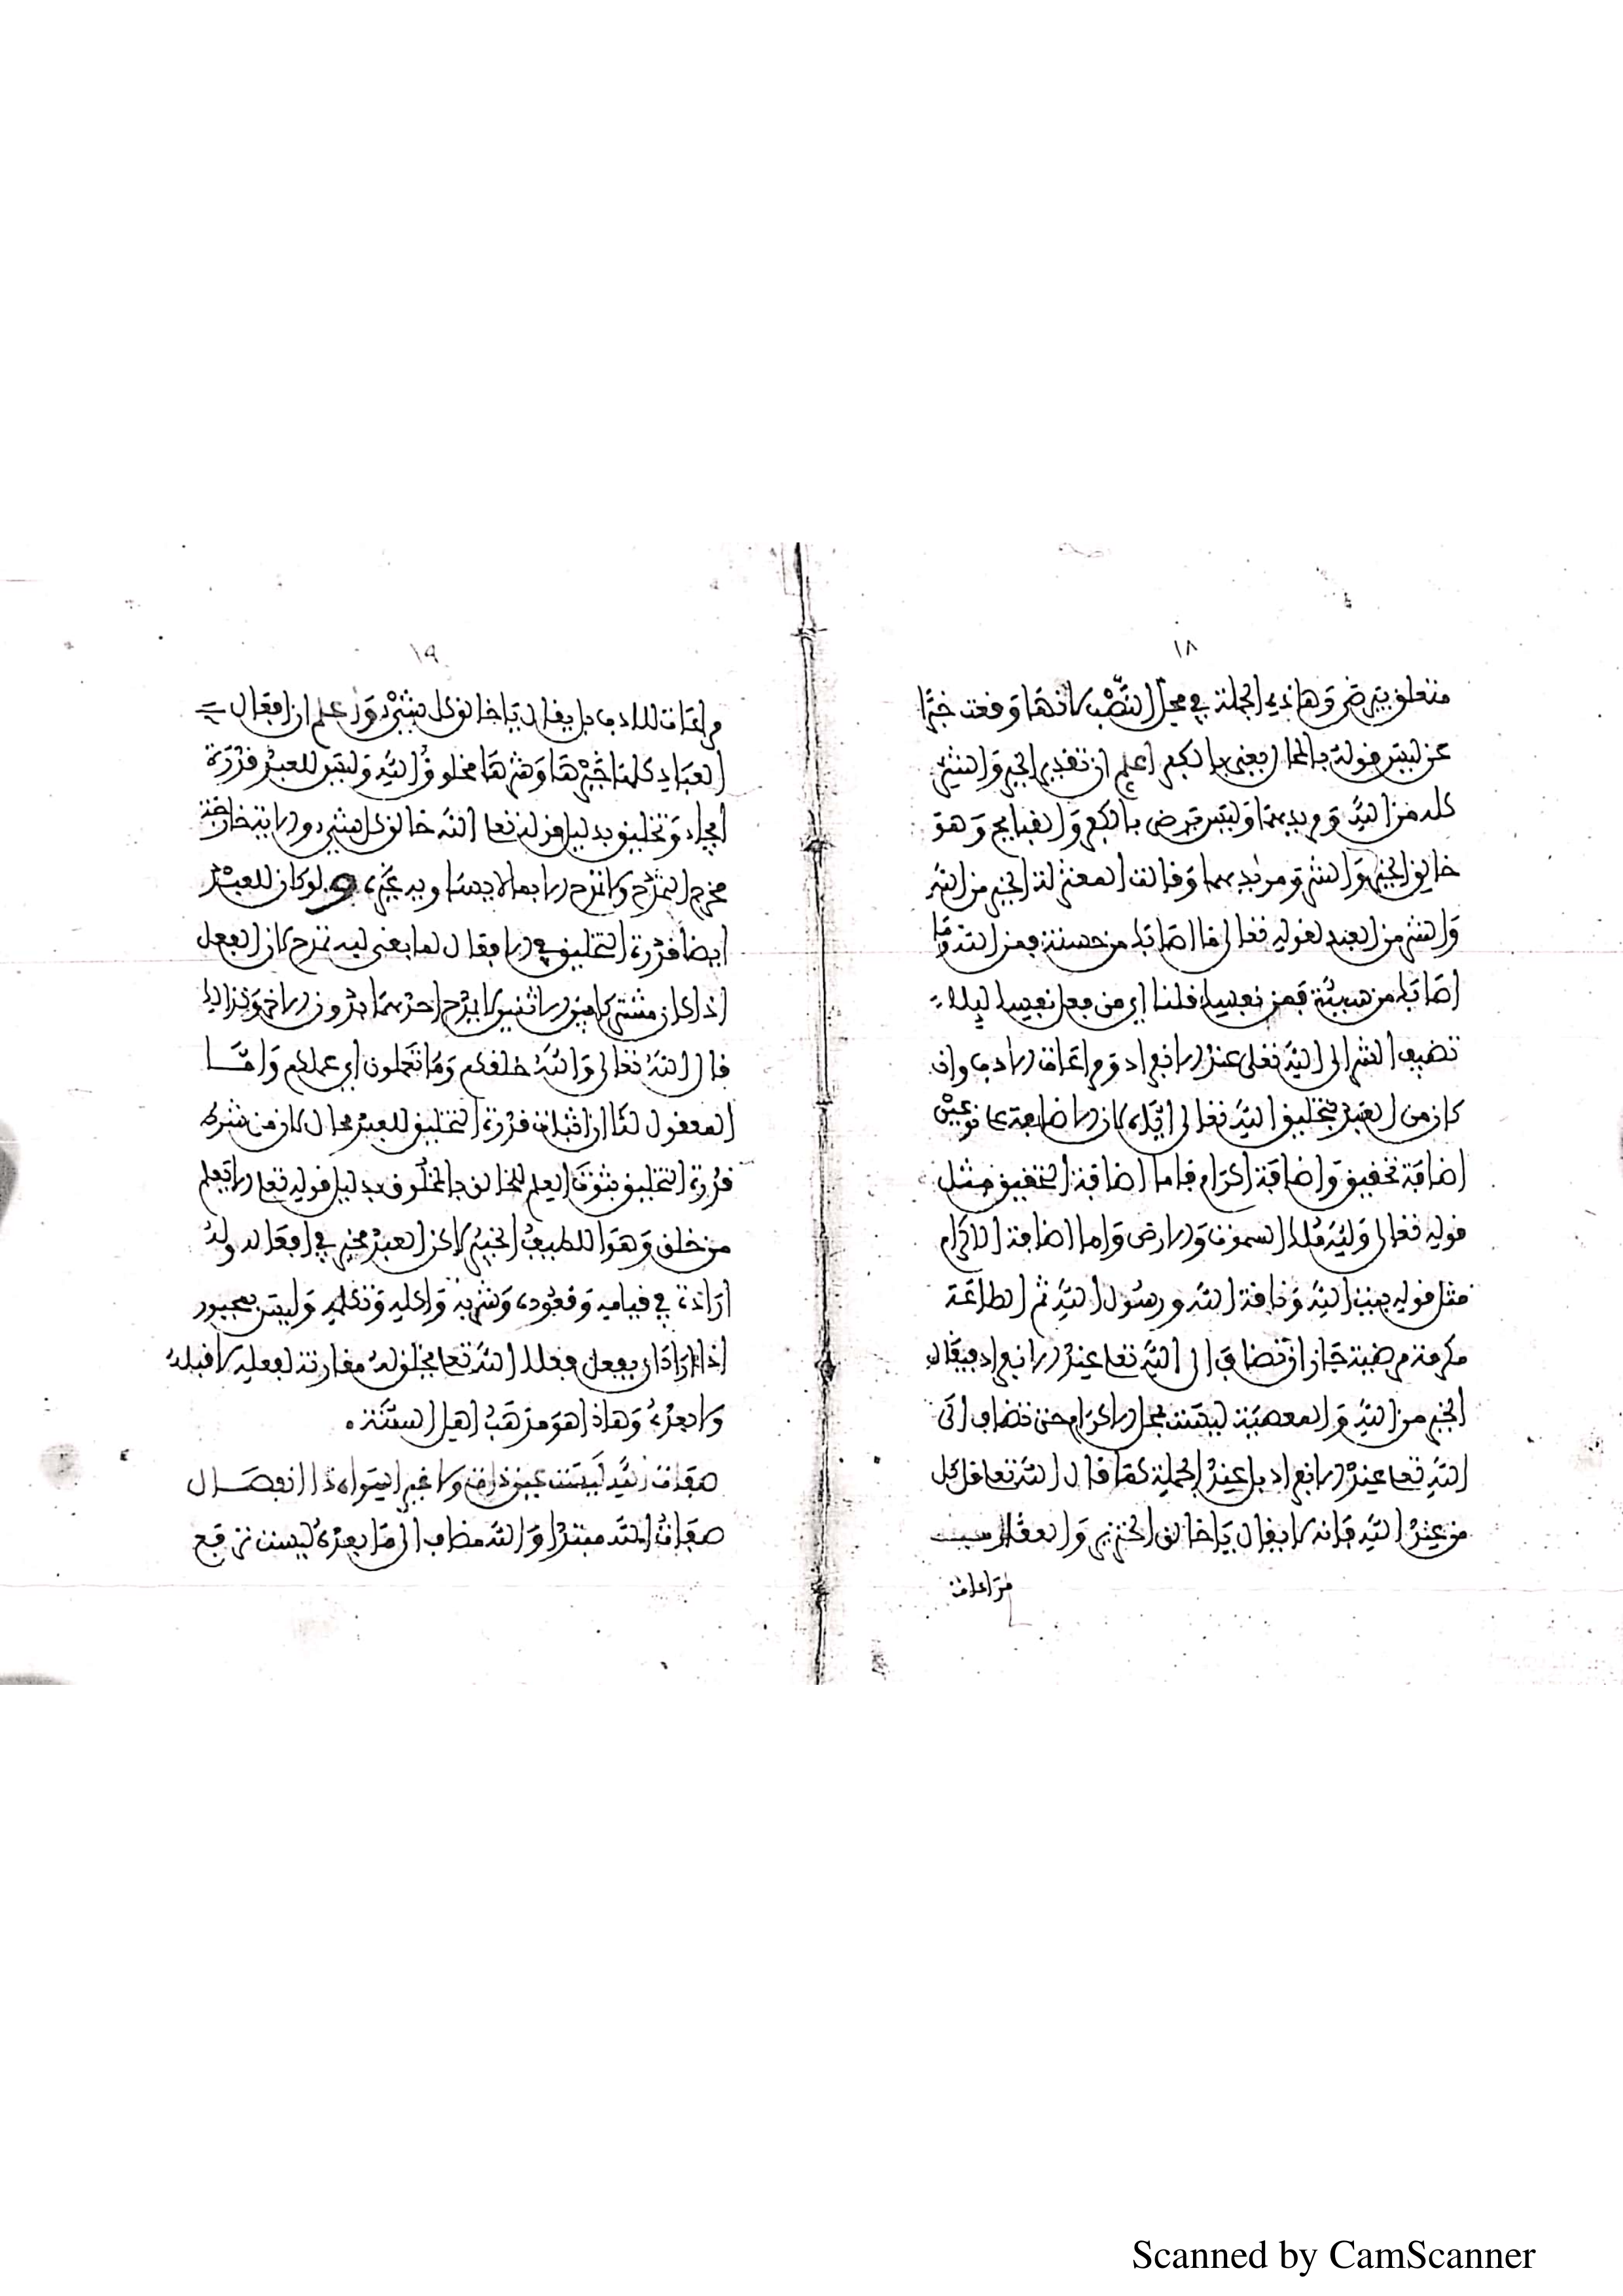 ١٨
متعلق بيرضى وهاذه الجملة في محل النصب لانها وقعت خبرا
عن ليس قوله بالمحال يعني بالكفر اعلم ان تقدير الخير والشر
كله من الله ومريدهما وليس يرضى بالكفر والقبايح وهو
خالق الخير والشر ومريدهما وقالت المعتزلة الخير من الله
والشر من العبد لقوله تعالى ما اصابك من حسنة فمن الله وما
اصابك من سيئة فمن نفسك قلنا اي من فعل نفسك ليلا
تضيف الشر الى الله تعلى عند الانفراد ومراعات الادب وان
كان من العبد بتخليق الله تعالى اياه لان الاضافة على نوعين
اضافة تحقيق واضافة اكرام فاما اضافة التحقيق مثل
قوله تعالى ولله ملك السموت والارض واما اضافة الاكرام
مثل قوله بيت الله وناقة الله ورسول الله ثم الطاعة
مكرمة مرضية جاز ان تضاف الى الله تعا عند الانفراد فيقال
الخير من الله والمعصية ليست بمحل الاكرام حتى تضاف الى
الله تعا عند الانفراد بل عند الجملة كما قال الله تعا قل كل
من عند الله فانه لا يقال يا خالق الخنزير والعقارب
مراعات
١٩
مراعات للادب بل يقال يا خالق كل شيء واعلم ان افعال
العباد كلها خيرها وشرها مخلوق الله وليس للعبد قدرة
ايجاد وتخليق بدليل قوله تعا الله خالق كل شيء والاية خارجة
مخرج التمدح ولا تمدح الا بما لا يساويه غيره ولو كان للعبد
ايضا قدرة التخليق في الافعال لما بقي ليه تمدح لان الفعل
اذا كان مشتركا بين الاثنين لا يمدح احدهما دون الاخر وكذالك
قال الله تعالى والله خلقكم وما تعملون اي عملكم واما
المعقول لنا ان اثبات قدرة التخليق للعبد محال لان من شرط
قدرة التخليق ثبوت العلم للخالق بالمخلوق بدليل قوله تعا الا يعلم
من خلق وهو اللطيف الخبير لاكن العبد مخير في افعاله وله
ارادة في قيامه وقعوده وشربه واكله وتكلمه وليس بمجبور
اذا اراد ان يفعل فعلا الله تعا يخلق له مقارنة لفعله لا قبله
ولا بعده وهاذا هو مذهب اهل السنة
صفات الله ليست عين ذات ولا غير اسواه ذا انفصال
صفات الله مبتدا والله مضاف الى ما بعده ليست ترفع